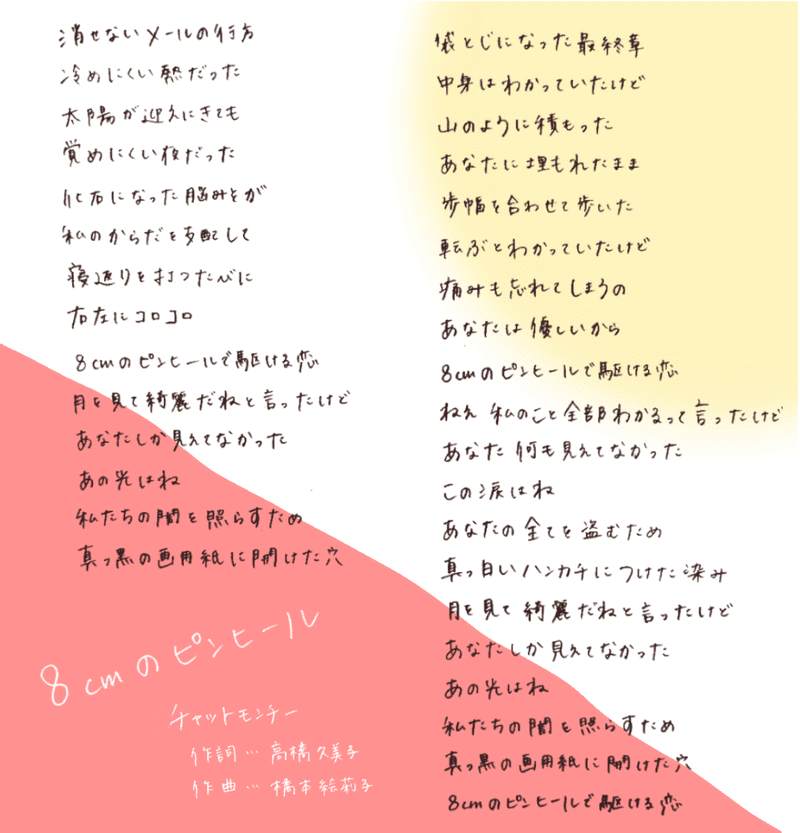 消せないメールの行方
冷めにくい熱だった
太陽が迎えにきても
覚めにくい夜だった
化石になった脳みそが
私のからだを支配して
寝返りを打つたびに
右左にコロコロ
8cmのピンヒールで駆ける恋
月を見て綺麗だねと言ったけど
あなたしか見えてなかった
あの光はね
私たちの闇を照らすため
真っ黒の画用紙に開けた穴
8cmのピンヒール
チャットモンチー
作詞…高橋久美子
作曲…橋本絵莉子
袋とじになった最終章
中身はわかっていたけど
山のように積もった
あなたに埋もれたまま
歩幅を合わせて歩いた
転ぶとわかっていたけど
痛みも忘れてしまうの
あなたは優しいから
8cmのピンヒールで駆ける恋
ねえ 私のこと全部わかるって言ったけど
あなた何も見えてなかった
この涙はね
あなたの全てを盗むため
真っ白いハンカチにつけた染み
月を見て綺麗だねと言ったけど
あなたしか見えてなかった
あの光はね
私たちの闇を照らすため
真っ黒の画用紙に開けた穴
8cmのピンヒールで駆ける恋